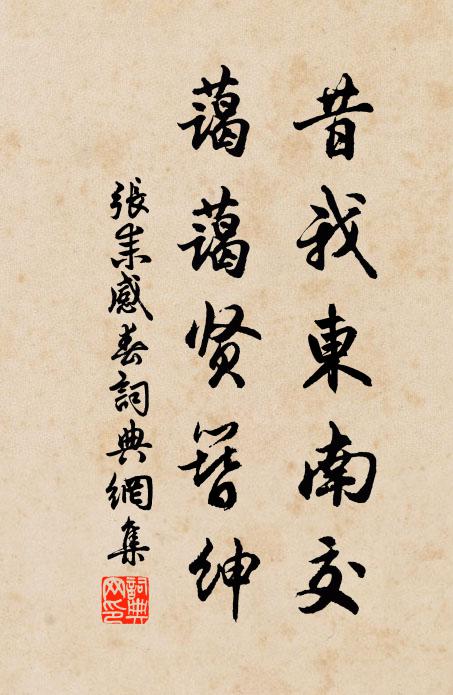 昔我東南交
藹藹贤簪紳
張耒感春詞典網集
詞典网印